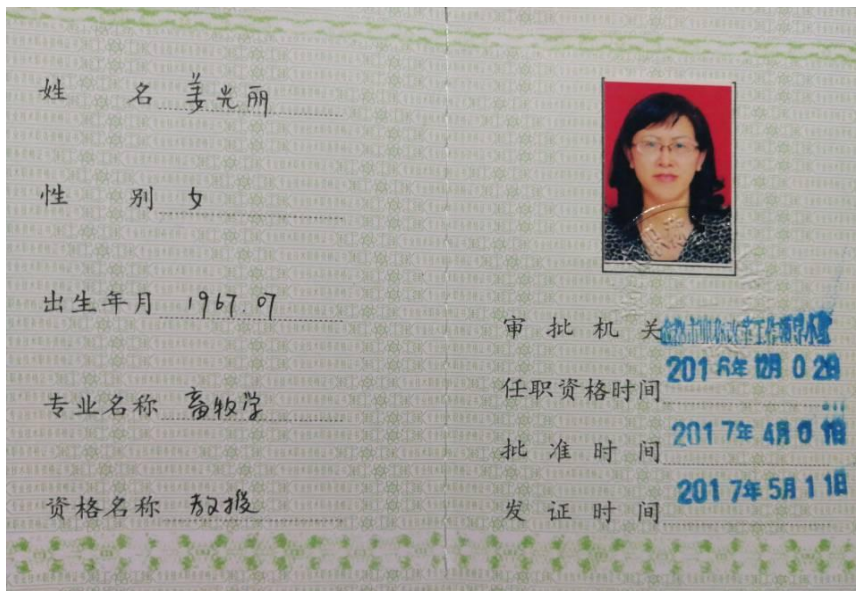 姓 名 姜光丽
性 别 女
出生年月 1967.07
专业名称 畜牧学
资格名称 教授
审 批 机 关 改革工作领导小组
任职资格时间 2016年12月02日
批 准 时 间 2017年4月01日
发 证 时 间 2017年5月11日